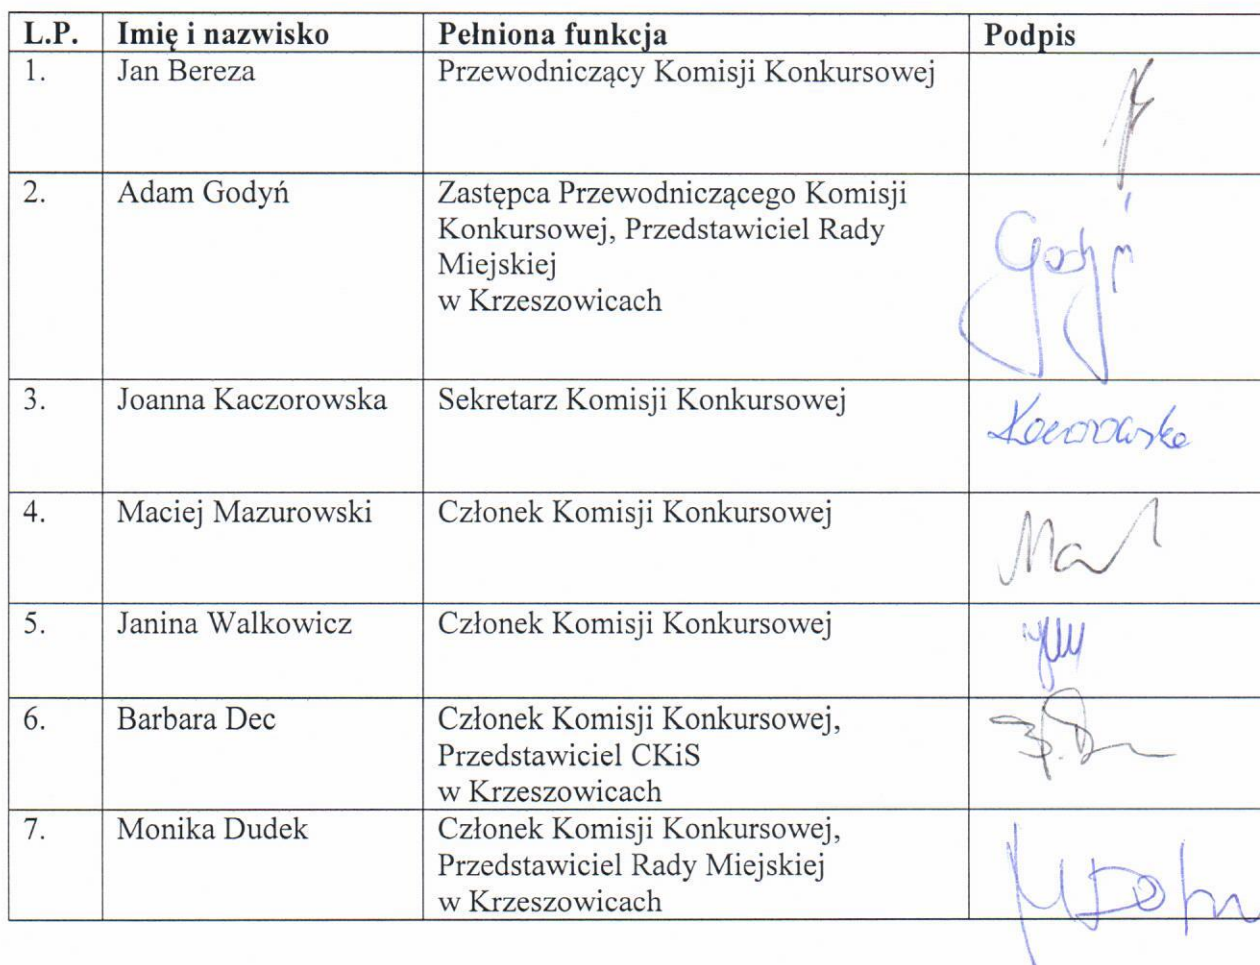 L.P. Imię i nazwisko Pełniona funkcja Podpis
1. Jan Bereza Przewodniczący Komisji Konkursowej
2. Adam Godyń Zastępca Przewodniczącego Komisji
Konkursowej, Przedstawiciel Rady
Miejskiej
w Krzeszowicach
Godyń
3. Joanna Kaczorowska Sekretarz Komisji Konkursowej
4. Maciej Mazurowski Członek Komisji Konkursowej
5. Janina Walkowicz Członek Komisji Konkursowej
6. Barbara Dec Członek Komisji Konkursowej,
Przedstawiciel CKiS
w Krzeszowicach
7. Monika Dudek Członek Komisji Konkursowej,
Przedstawiciel Rady Miejskiej
w Krzeszowicach